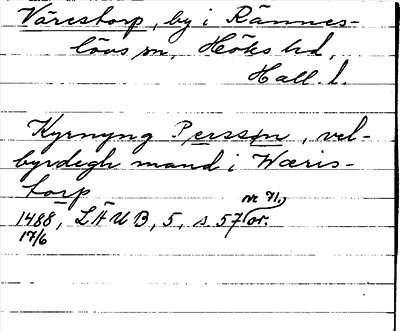 Vårestorp, by i Rännes-
lövs sn, Höks hd,
Hall. l.
Kyrnyng Persson, vel-
byrdegh mand i Wæris-
torp
1488, LÄUB, 5, s 57 nr 71, or.
17/6